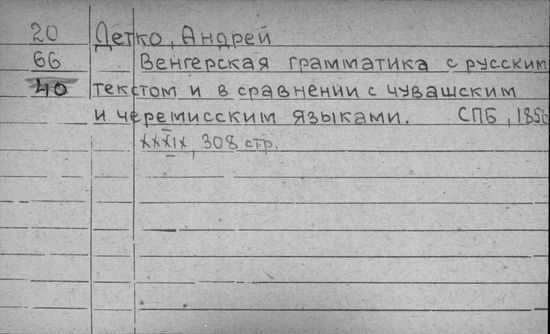 20 Детко, Андрей
66 Венгерская грамматика с русским
40 текстом и в сравнении с чувашским
и черемисским языками. СПБ, 1856
XXXIX, 308 стр.